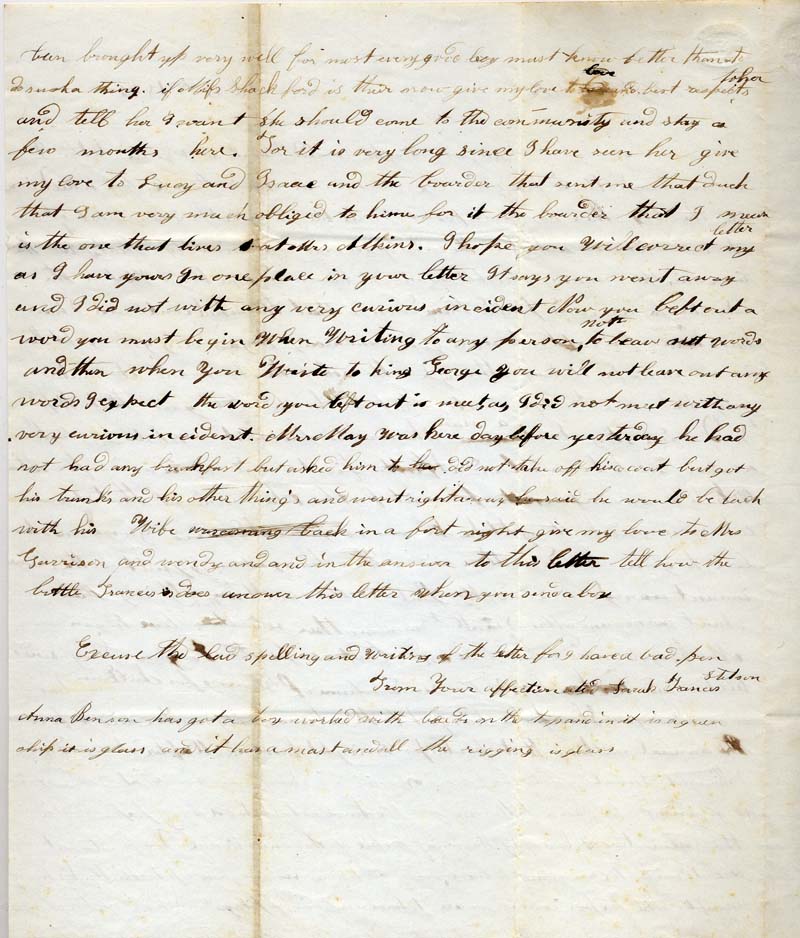 been brought up very well for most every good boy must know better than to
do sucha thing. if Miss Shackford is thier now give my love to best respects
and tell her I want she should come to the community and stay a
few months here. For it is very long since I have seen her give
my love to Lucy and Isaac and the boarder that sent me that duck
that I am very much obliged to hime for it the boarder that I mean
is the one that lives at Mrs Atkins. I hope you will correct my letter
as I have yours In one place in your letter It says you went away
and I did not with any very curious incident Now you left out a
word you must begin When Writing to any person noth to leave out words
and then when you Write to king George you will not leave out any
words I expect the word you left out is meet, as, I did not meet with any
very curious incident. Mr May was here day before yesterday he had
not had any breakfast but asked him did not take off his coat but got
his trunks and his other thing's and went right away he said he would be back
with his Wife back in a fort night give my love to Mrs
Garrison and wendy and and in the answer to this letter tell how the
bottle Francis does answer this letter when you send a box
Excuse the bad spelling and writing of the letter for I have a bad pen
From Your affectionate Sarah Francis Stetson
Anna Benson has got a box worked with beads on the top and in it is a green
ship it is glass and it has a mast and all the rigging is glass